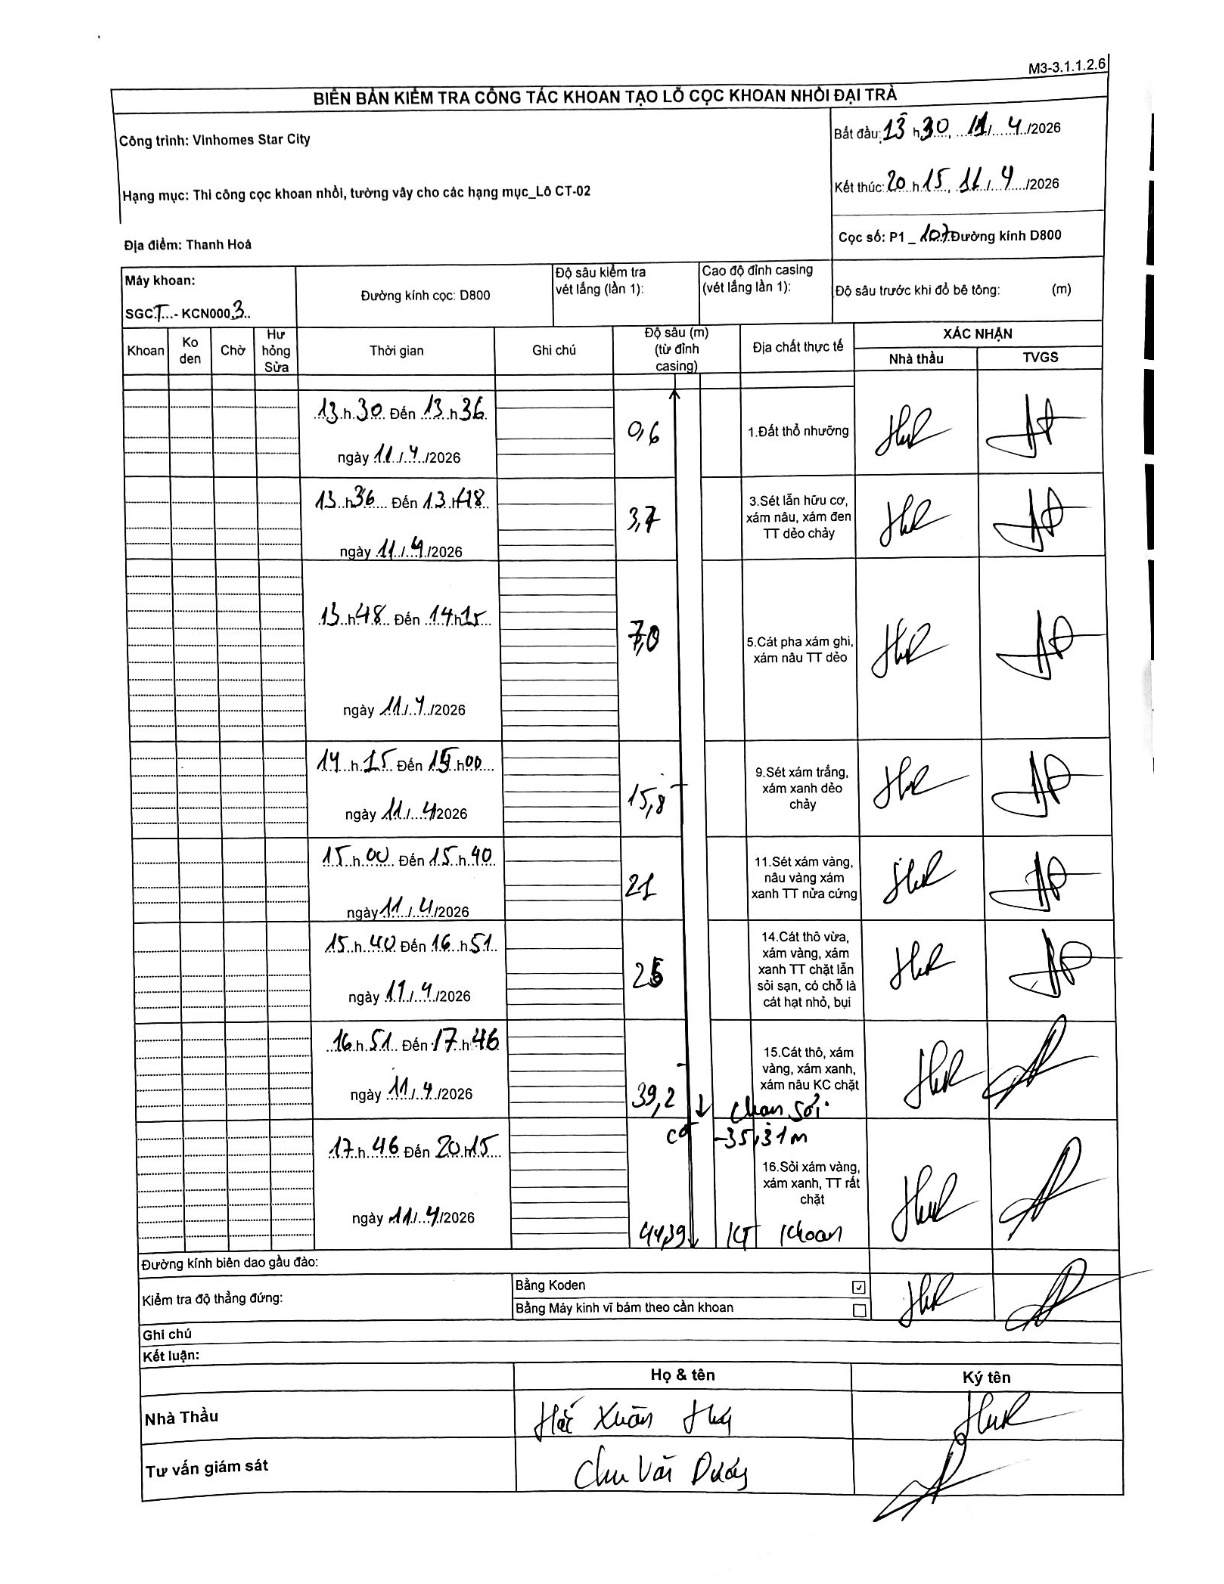 M3-3.1.1.2.6
BIÊN BẢN KIỂM TRA CÔNG TÁC KHOAN TẠO LỖ CỌC KHOAN NHỒI ĐẠI TRÀ
Công trình: Vinhomes Star City
Bắt đầu: 13 h 30, 11/ 4 /2026
Hạng mục: Thi công cọc khoan nhồi, tường vây cho các hạng mục_Lô CT-02
Kết thúc: 20 h 15, 11/ 4 /2026
Địa điểm: Thanh Hoá
Cọc số: P1 _ 107 Đường kính D800
Máy khoan:
SGCT - KCN0003
Đường kính cọc: D800
Độ sâu kiểm tra vét lắng (lần 1):
Cao độ đỉnh casing (vét lắng lần 1):
Độ sâu trước khi đổ bê tông: (m)
Khoan
Ko đen
Chờ
Hư hỏng Sửa
Thời gian
Ghi chú
Độ sâu (m) (từ đỉnh casing)
Địa chất thực tế
XÁC NHẬN
Nhà thầu
TVGS
13 h 30 Đến 13 h 36
ngày 11/ 4 /2026
0,6
1.Đất thổ nhưỡng
13 h 36 Đến 13 h 48
ngày 11/ 4 /2026
3,7
3.Sét lẫn hữu cơ,
xám nâu, xám đen
TT dẻo chảy
13 h 48 Đến 14 h 15
ngày 11/ 4 /2026
7,0
5.Cát pha xám ghi,
xám nâu TT dẻo
14 h 15 Đến 15 h 00
ngày 11/ 4 /2026
15,8
9.Sét xám trắng,
xám xanh dẻo
chảy
15 h 00 Đến 15 h 40
ngày 11/ 4 /2026
21
11.Sét xám vàng,
nâu vàng xám
xanh TT nửa cứng
15 h 40 Đến 16 h 51
ngày 11/ 4 /2026
14.Cát thô vừa,
xám vàng, xám
xanh TT chặt lẫn
sỏi sạn, có chỗ là
cát hạt nhỏ, bụi
16 h 51 Đến 17 h 46
ngày 11/ 4 /2026
39,2
15.Cát thô, xám
vàng, xám xanh,
xám nâu KC chặt
Chạm sỏi
-35,31m
17 h 46 Đến 20 h 15
ngày 11/ 4 /2026
44,39
16.Sỏi xám vàng,
xám xanh, TT rất
chặt
KT Khoan
Đường kính biên dao gầu đào:
Kiểm tra độ thẳng đứng:
Bằng Koden ☑
Bằng Máy kinh vĩ bám theo cần khoan ☐
Ghi chú
Kết luận:
Họ & tên
Ký tên
Nhà Thầu
Xuân
Tư vấn giám sát
Chu Văn Dương